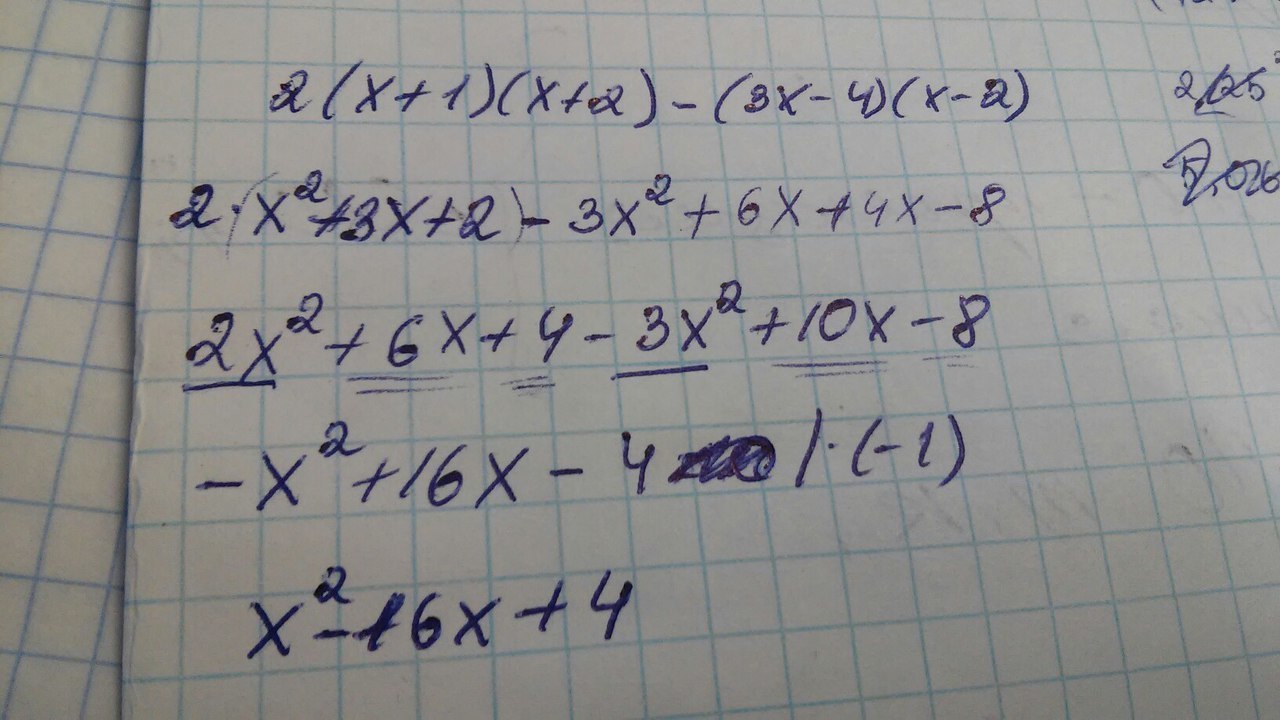 2(x+1)(x+2)-(3x-4)(x-2)
2·(x²+3x+2)-3x²+6x+4x-8
2x²+6x+4-3x²+10x-8
-x²+16x-4 |·(-1)
x²-16x+4